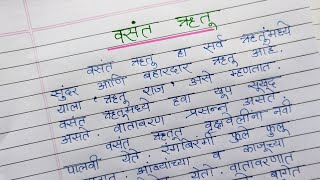 वसंत ऋतू
वसंत ऋतू हा सर्व ऋतूंमध्ये
सुंदर आणि बहारदार ऋतू आहे.
याला 'ऋतू राज' असे म्हणतात.
वसंत ऋतूमध्ये हवा खूप सुखद
असते. वातावरण प्रसन्न असते.
वसंत ऋतूत वृक्षवेलींना नवी
पालवी येते. रंगीबेरंगी फुले फुलू
लागतात. आंब्याच्या व काजूच्या
येतो. वातावरणात
बागेत